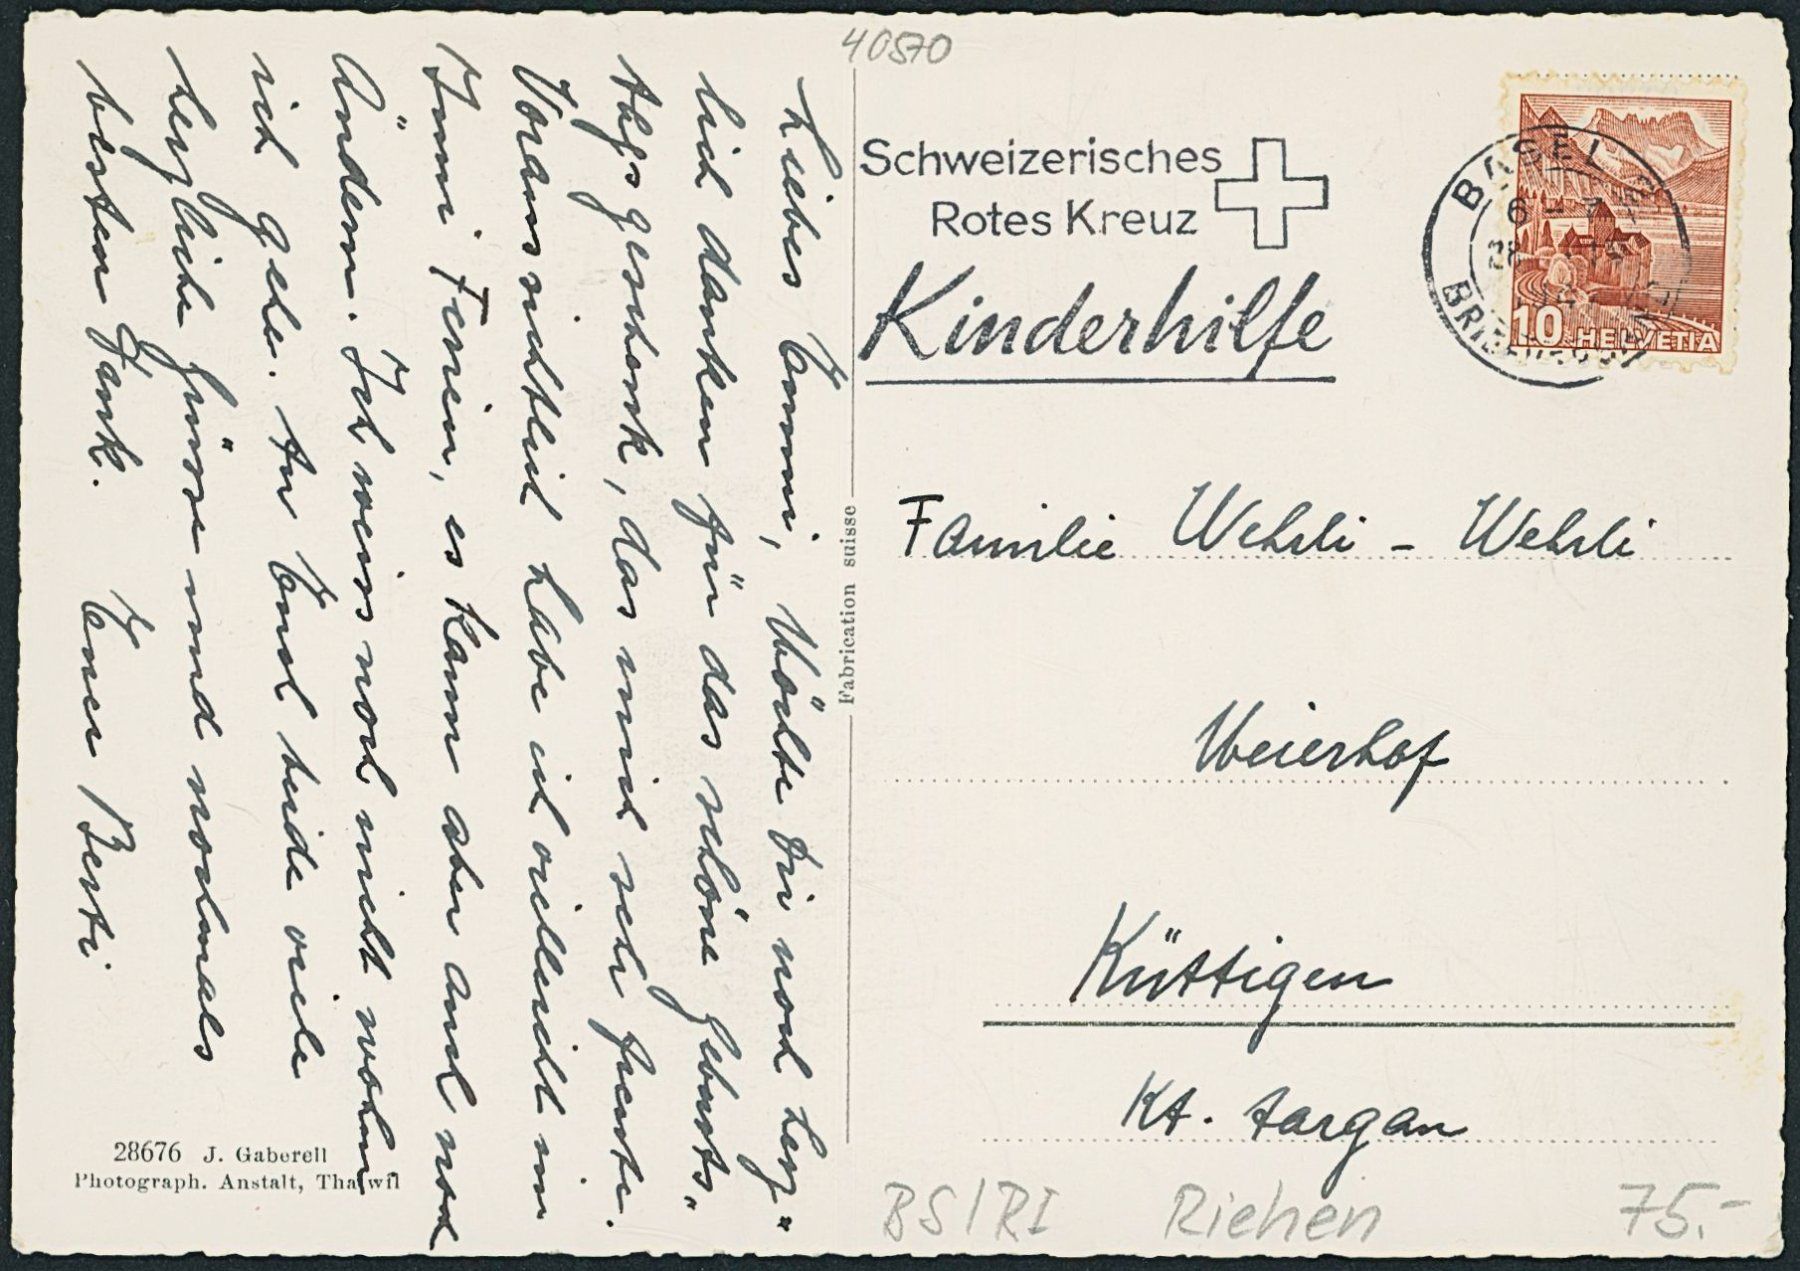 40870
Liebes Emmi, Möchte Dir noch herz"
lich danken für das schöne Geburts"
tagsgeschenk, das mich sehr freute.
Voraussichtlich habe ich villeicht im
Juni Ferien, es kann aber auch noch
ändern. Ich weiss noch nicht wohin
ich gehe. An Euch beide viele
herzliche Grüsse und nochmals
besten Dank. Euer Berti
28676 J. Gaberell
Photograph. Anstalt, Thalwil
Fabrication suisse
Schweizerisches
Rotes Kreuz
Kinderhilfe
BASEL
10 HELVETIA
Familie Wehrli - Wehrli
Weierhof
Küttigen
Kt. Aargau
BS/RI Riehen 75.-